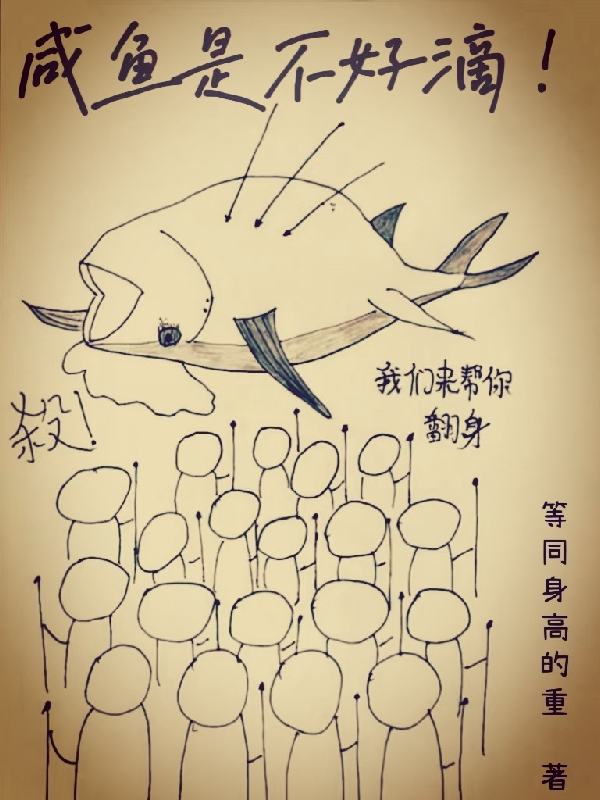 咸鱼是不好滴！
我们来帮你
翻身
殺！
等同身高的重 著